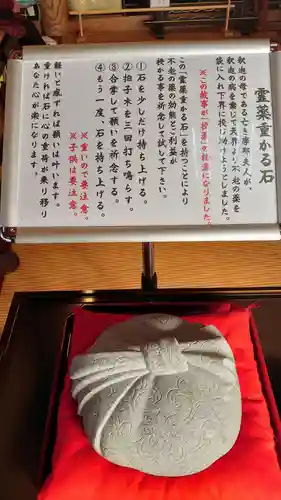 霊薬重かる石
釈迦の母である亡き摩耶夫人が、
釈迦の病を案じて天界より不老の薬を
袋に入れ下界に授け助けようとしました。
※この故事が「投薬」の起源になりました。
この「霊薬重かる石」を持つことにより
不老の薬の効能とご利益が
授かる事を祈念して試して下さい。
①石を少しだけ持ち上げる。
②拍子木を三回打ち鳴らす。
③合掌して願いを祈念する。
④もう一度、石を持ち上げる。
※重いので要注意。
※子供は要注意。
軽いと感ずれば願いは叶います。
重ければ石に心の重荷が乗り移り
あなた心が楽になります。